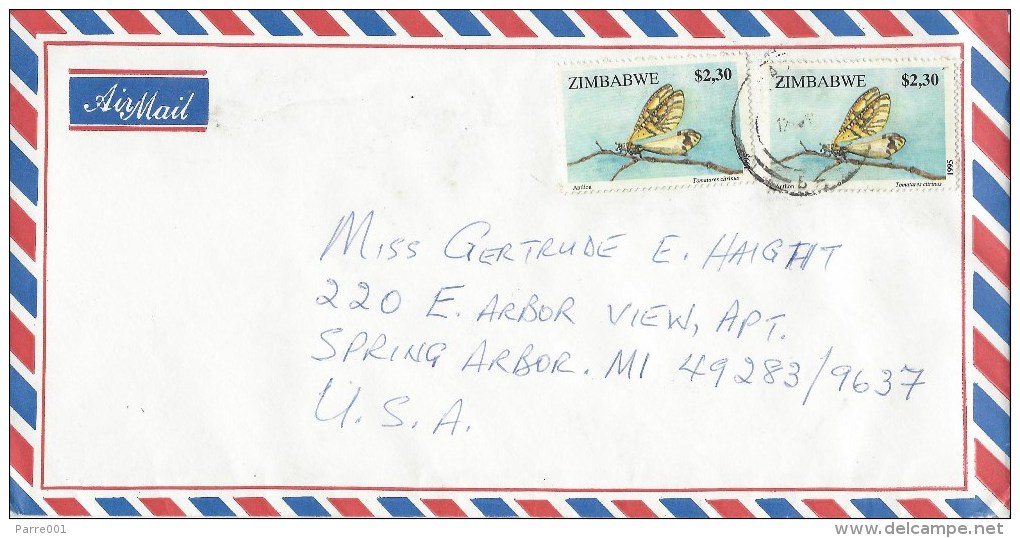 Air Mail
ZIMBABWE $2,30
Antlion Tomatares citrinus
ZIMBABWE $2,30
Antlion Tomatares citrinus
1995
MISS GERTRUDE E. HAIGHT
220 E. ARBOR VIEW, APT.
SPRING ARBOR. MI 49283/9637
U.S.A.
Parre001
www.delcampe.net